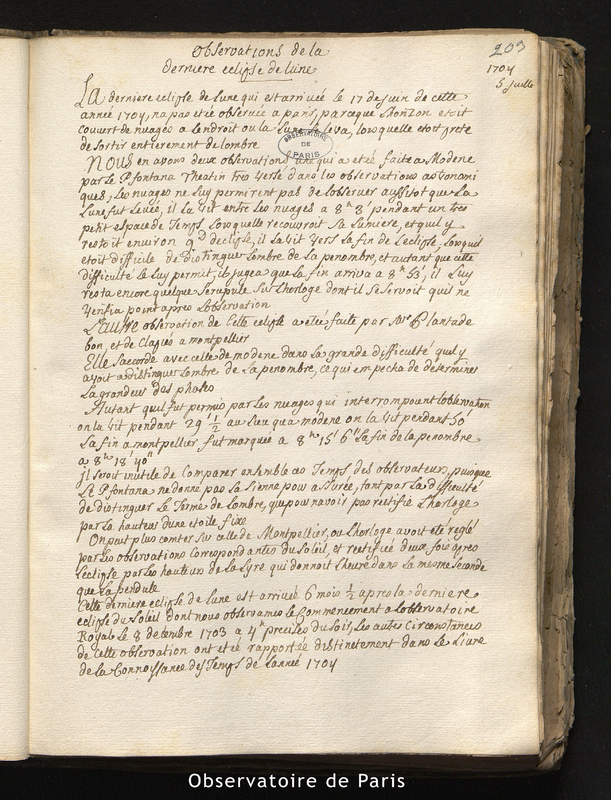 203
1704
5 Juille
Observations de la
derniere eclipse de lune
La derniere eclipse de Lune qui est arrivée le 17 de Juin de cette
année 1704, na pas eté observée a paris, parceque Lhorizon etoit
couvert de nuages a lendroit ou la Lune se leva, lors quelle etoit prete
de sortir entierement de lombre
OBSERVATOIRE
DE
PARIS
Nous en avons deux observations une qui a eté faite a Modene
par le P fontana Theatin tres versé dans les observations astronomi
ques, Les nuages ne luy permirent pas de lobserver aussitot que La
Lune fut Levée, il la vit entre les nuages a 8h 8' pendant un tres
petit espace de Temps, Lors quelle recouvroit sa Lumiere, et quil y
restoit environ 9d declipse, il la vit vers la fin de Leclipse, lorsquil
etoit difficile de distinguer Lombre de la penombre, et autant que cette
difficulté le luy permit, il jugea que la fin arriva a 8h 53', il luy
resta encore quelque scrupule sur Lhorloge dont il se servoit quil ne
verifia point apres Lobservation
L'autre observation de Cette eclipse a eté faite par Mrs Plantade
bon, et de Clapiés a montpellier
Elle saccorde avec celle de modene dans la grande difficulté quil y
avoit a distinguer Lombre de la penombre, ce qui empecha de determiner
La grandeur des phases
Autant quil fut permis par les nuages qui interrompoient Lobservation
on la vit pendant 29' 1/2 au lieu qua modene on la vit pendant 50'
La fin a montpellier fut marquée a 8h 15' 6" la fin de la penombre
a 8h 18' 40"
Il seroit inutile de Comparer ensemble les Temps des observateurs, puisque
Le P fontana ne donne pas la sienne pour assurée, tant par la difficulté
de distinguer le Terme de Lombre, que pour navoir pas rectifié Lhorloge
par la hauteur dune etoile fixe
On peut plus conter sur celle de Montpellier, ou Lhorloge avoit eté reglé
par les observations correspondantes du Soleil, et rectifiée deux fois apres
Leclipse par les hauteurs de La Lyre qui donnoit Lheure dans la mesme seconde
que la pendule
Cette derniere eclipse de Lune est arrivée 6 mois 1/2 apres la derniere
eclipse du Soleil dont nous observames le Commencement a Lobservatoire
Royal le 8 decembre 1703 a 4h precises du soir, Les autres Circonstances
de Cette observation ont eté rapportée distinctement dans le Livre
de la Connoissance des Temps de Lannée 1704
Observatoire de Paris